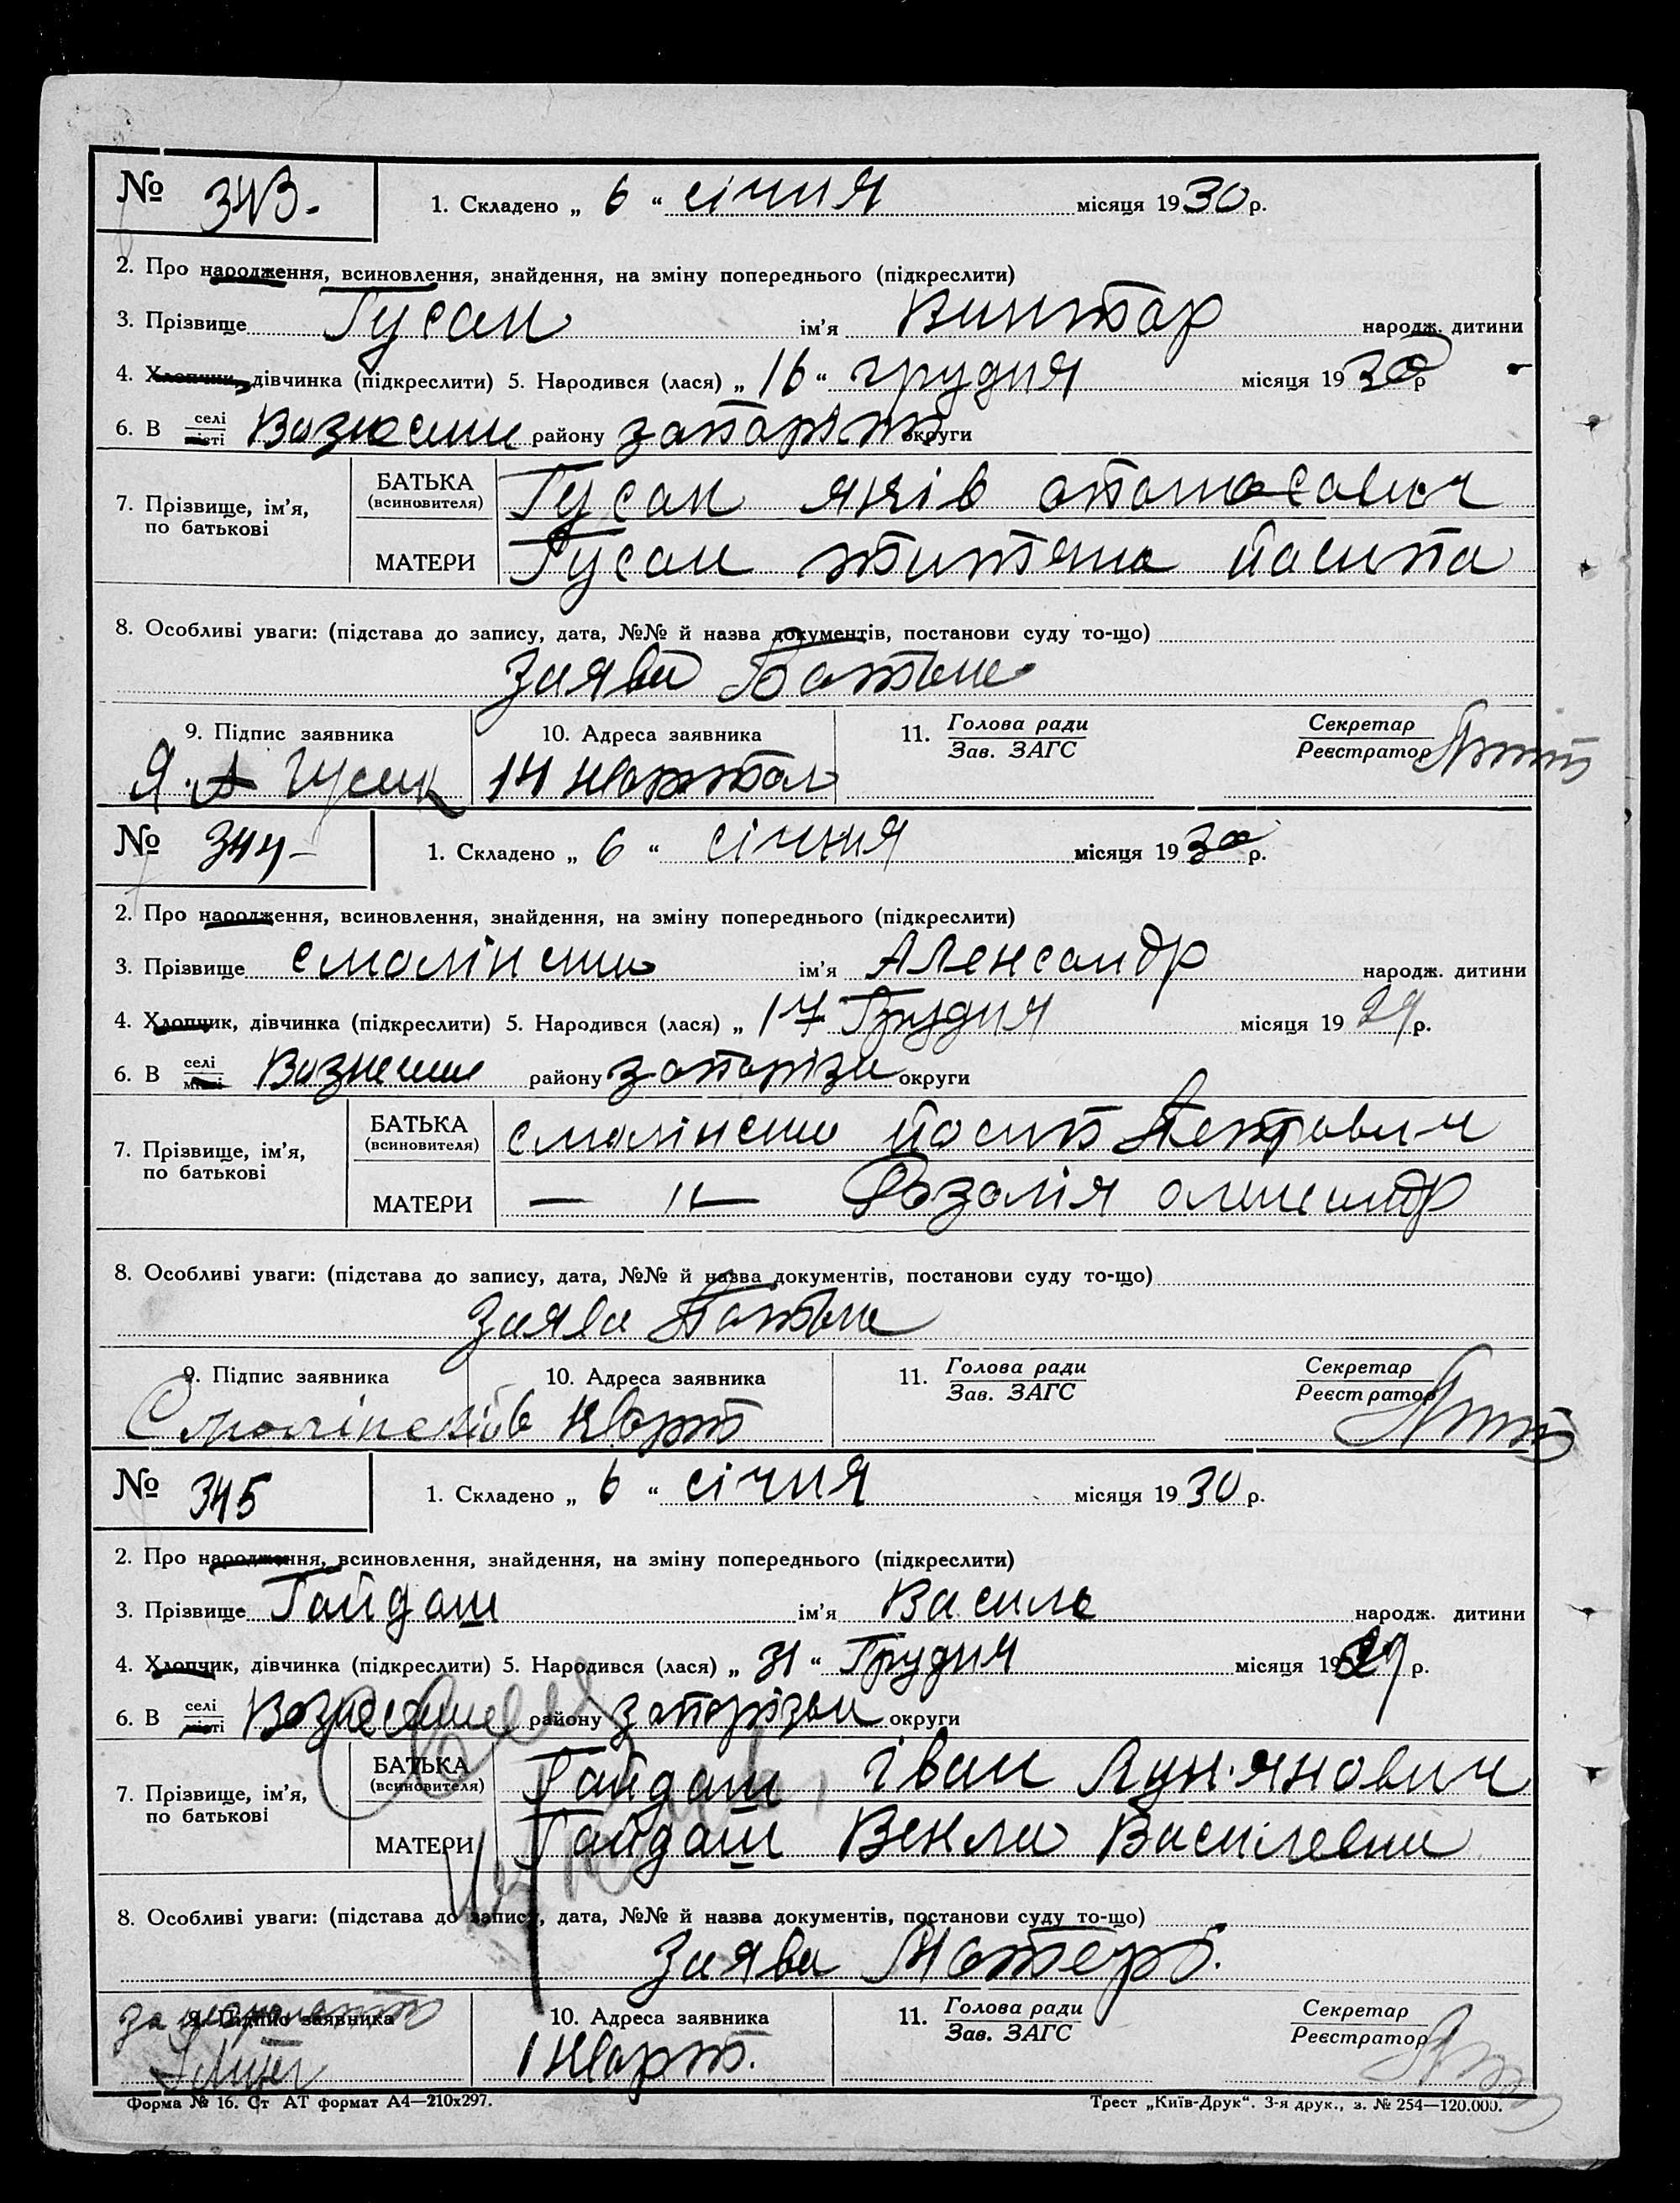 № 343. 1. Складено „ 6 “ січня місяця 1930 р.
2. Про народження, всиновлення, знайдення, на зміну попереднього (підкреслити)
3. Прізвище Гусак ім’я Виктар народж. дитини
4. Хлопчик, дівчинка (підкреслити) 5. Народився (лася) „ 16 “ грудня місяця 1930 р
6. В селі місті Вознесен району запоріж округи
7. Прізвище, ім’я, по батькові
БАТЬКА (всиновителя) Гусак яків опанасович
МАТЕРИ Гусак титяна йосипа
8. Особливі уваги: (підстава до запису, дата, №№ й назва документів, постанови суду то-що)
Заява Батька
9. Підпис заявника 10. Адреса заявника 11. Голова ради Зав. ЗАГС Секретар Реєстратор
Я. А Гусик 14 квартал
№ 344 - 1. Складено „ 6 “ січня місяця 1930 р.
2. Про народження, всиновлення, знайдення, на зміну попереднього (підкреслити)
3. Прізвище смолінски ім’я Александр народж. дитини
4. Хлопчик, дівчинка (підкреслити) 5. Народився (лася) „ 17 Грудня місяця 1929 р.
6. В селі місті Вознесен району запорізк округи
7. Прізвище, ім’я, по батькові
БАТЬКА (всиновителя) смолінски йосип Петрович
МАТЕРИ — 〃 — Розалія олександр
8. Особливі уваги: (підстава до запису, дата, №№ й назва документів, постанови суду то-що)
Заява Батька
9. Підпис заявника 10. Адреса заявника 11. Голова ради Зав. ЗАГС Секретар Реєстратор
Смолінскій 6 Кварт
№ 345 1. Складено „ 6 “ січня місяця 1930 р.
2. Про народження, всиновлення, знайдення, на зміну попереднього (підкреслити)
3. Прізвище Гайдаш ім’я Василь народж. дитини
4. Хлопчик, дівчинка (підкреслити) 5. Народився (лася) „ 31 “ Грудня місяця 1929 р.
6. В селі місті Вознесенк району запорізьк округи
7. Прізвище, ім’я, по батькові
БАТЬКА (всиновителя) Гайдаш іван Лук'янович
МАТЕРИ Гайдаш Векла Василевна
8. Особливі уваги: (підстава до запису, дата, №№ й назва документів, постанови суду то-що)
Заява Матері.
9. Підпис заявника 10. Адреса заявника 11. Голова ради Зав. ЗАГС Секретар Реєстратор
1 Кварт.
Форма № 16. Ст АТ формат А4—210х297. Трест „Київ-Друк“. 3-я друк., з. № 254—120.000.